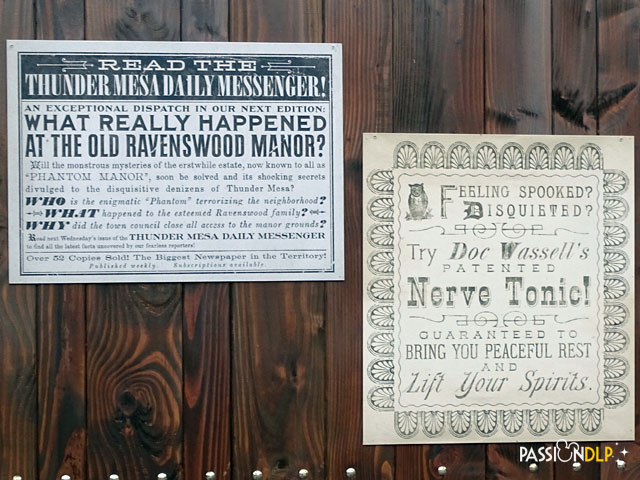 READ THE
THUNDER MESA DAILY MESSENGER!
AN EXCEPTIONAL DISPATCH IN OUR NEXT EDITION:
WHAT REALLY HAPPENED
AT THE OLD RAVENSWOOD MANOR?
Will the monstrous mysteries of the erstwhile estate, now known to all as
"PHANTOM MANOR", soon be solved and its shocking secrets
divulged to the disquisitive denizens of Thunder Mesa?
WHO is the enigmatic "Phantom" terrorizing the neighborhood?
WHAT happened to the esteemed Ravenswood family?
WHY did the town council close all access to the manor grounds?
Read next Wednesday's issue of the THUNDER MESA DAILY MESSENGER
to find all the latest facts uncovered by our fearless reporters!
Over 52 Copies Sold! The Biggest Newspaper in the Territory!
Published weekly. Subscriptions available.
FEELING SPOOKED?
DISQUIETED?
Try Doc Wassell's
PATENTED
Nerve Tonic!
GUARANTEED TO
BRING YOU PEACEFUL REST
AND
Lift Your Spirits.
PASSIONDLP